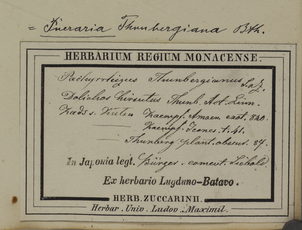 = Pueraria Thunbergiana Bth.
HERBARIUM REGIUM MONACENSE.
Pachyrrhizus Thunbergianus S. & Z.
Dolichos hirsutus Thunb. Act. Linn.
Kads s. Kudsu Kaempf. Amoen. exot. 840.
Kaempf. Icones. t. 41.
Thunberg plant. obscur. 87.
In Japonia legt. Bürger. comert. Siebold
Ex herbario Lugduno-Batavo.
HERB. ZUCCARINII.
Herbar. Univ. Ludov. Maximil.